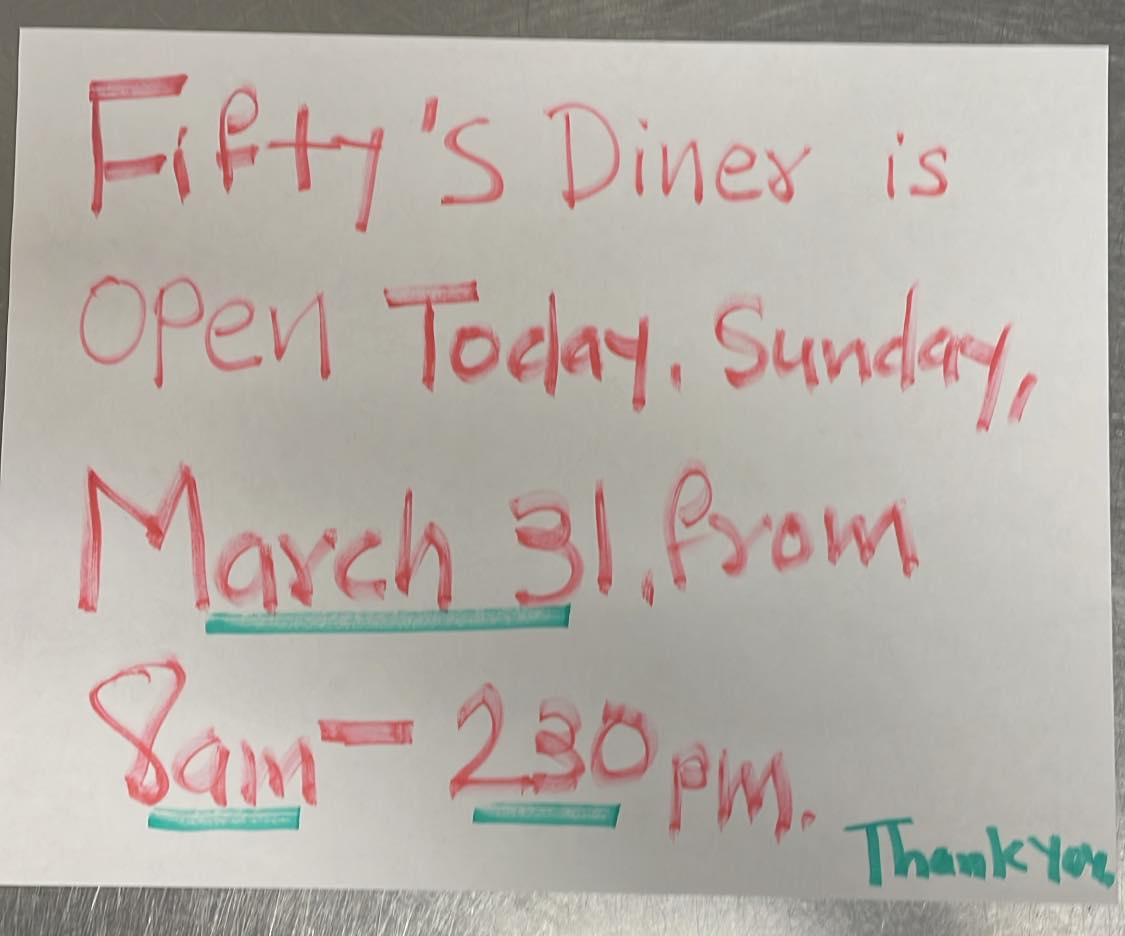 Fifty's Diner is
open Today. Sunday,
March 31, from
8am - 230 pm.
Thank you